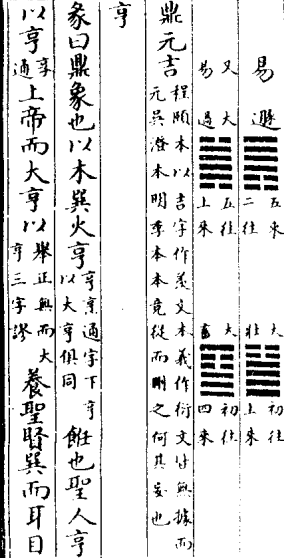 易遯五來二往大壯初往上來
又易大過五往上來大畜初往四來
鼎元吉程頤本以吉字作羨文本義作衍文皆無據而元吳澄本明季本本竟從而刪之何其妄也
亨
彖曰鼎象也以木巽火亨亨烹通字下亨以大亨俱同飪也聖人亨
以亨享通上帝而大亨以舉正無而大亨三字謬養聖賢巽而耳目